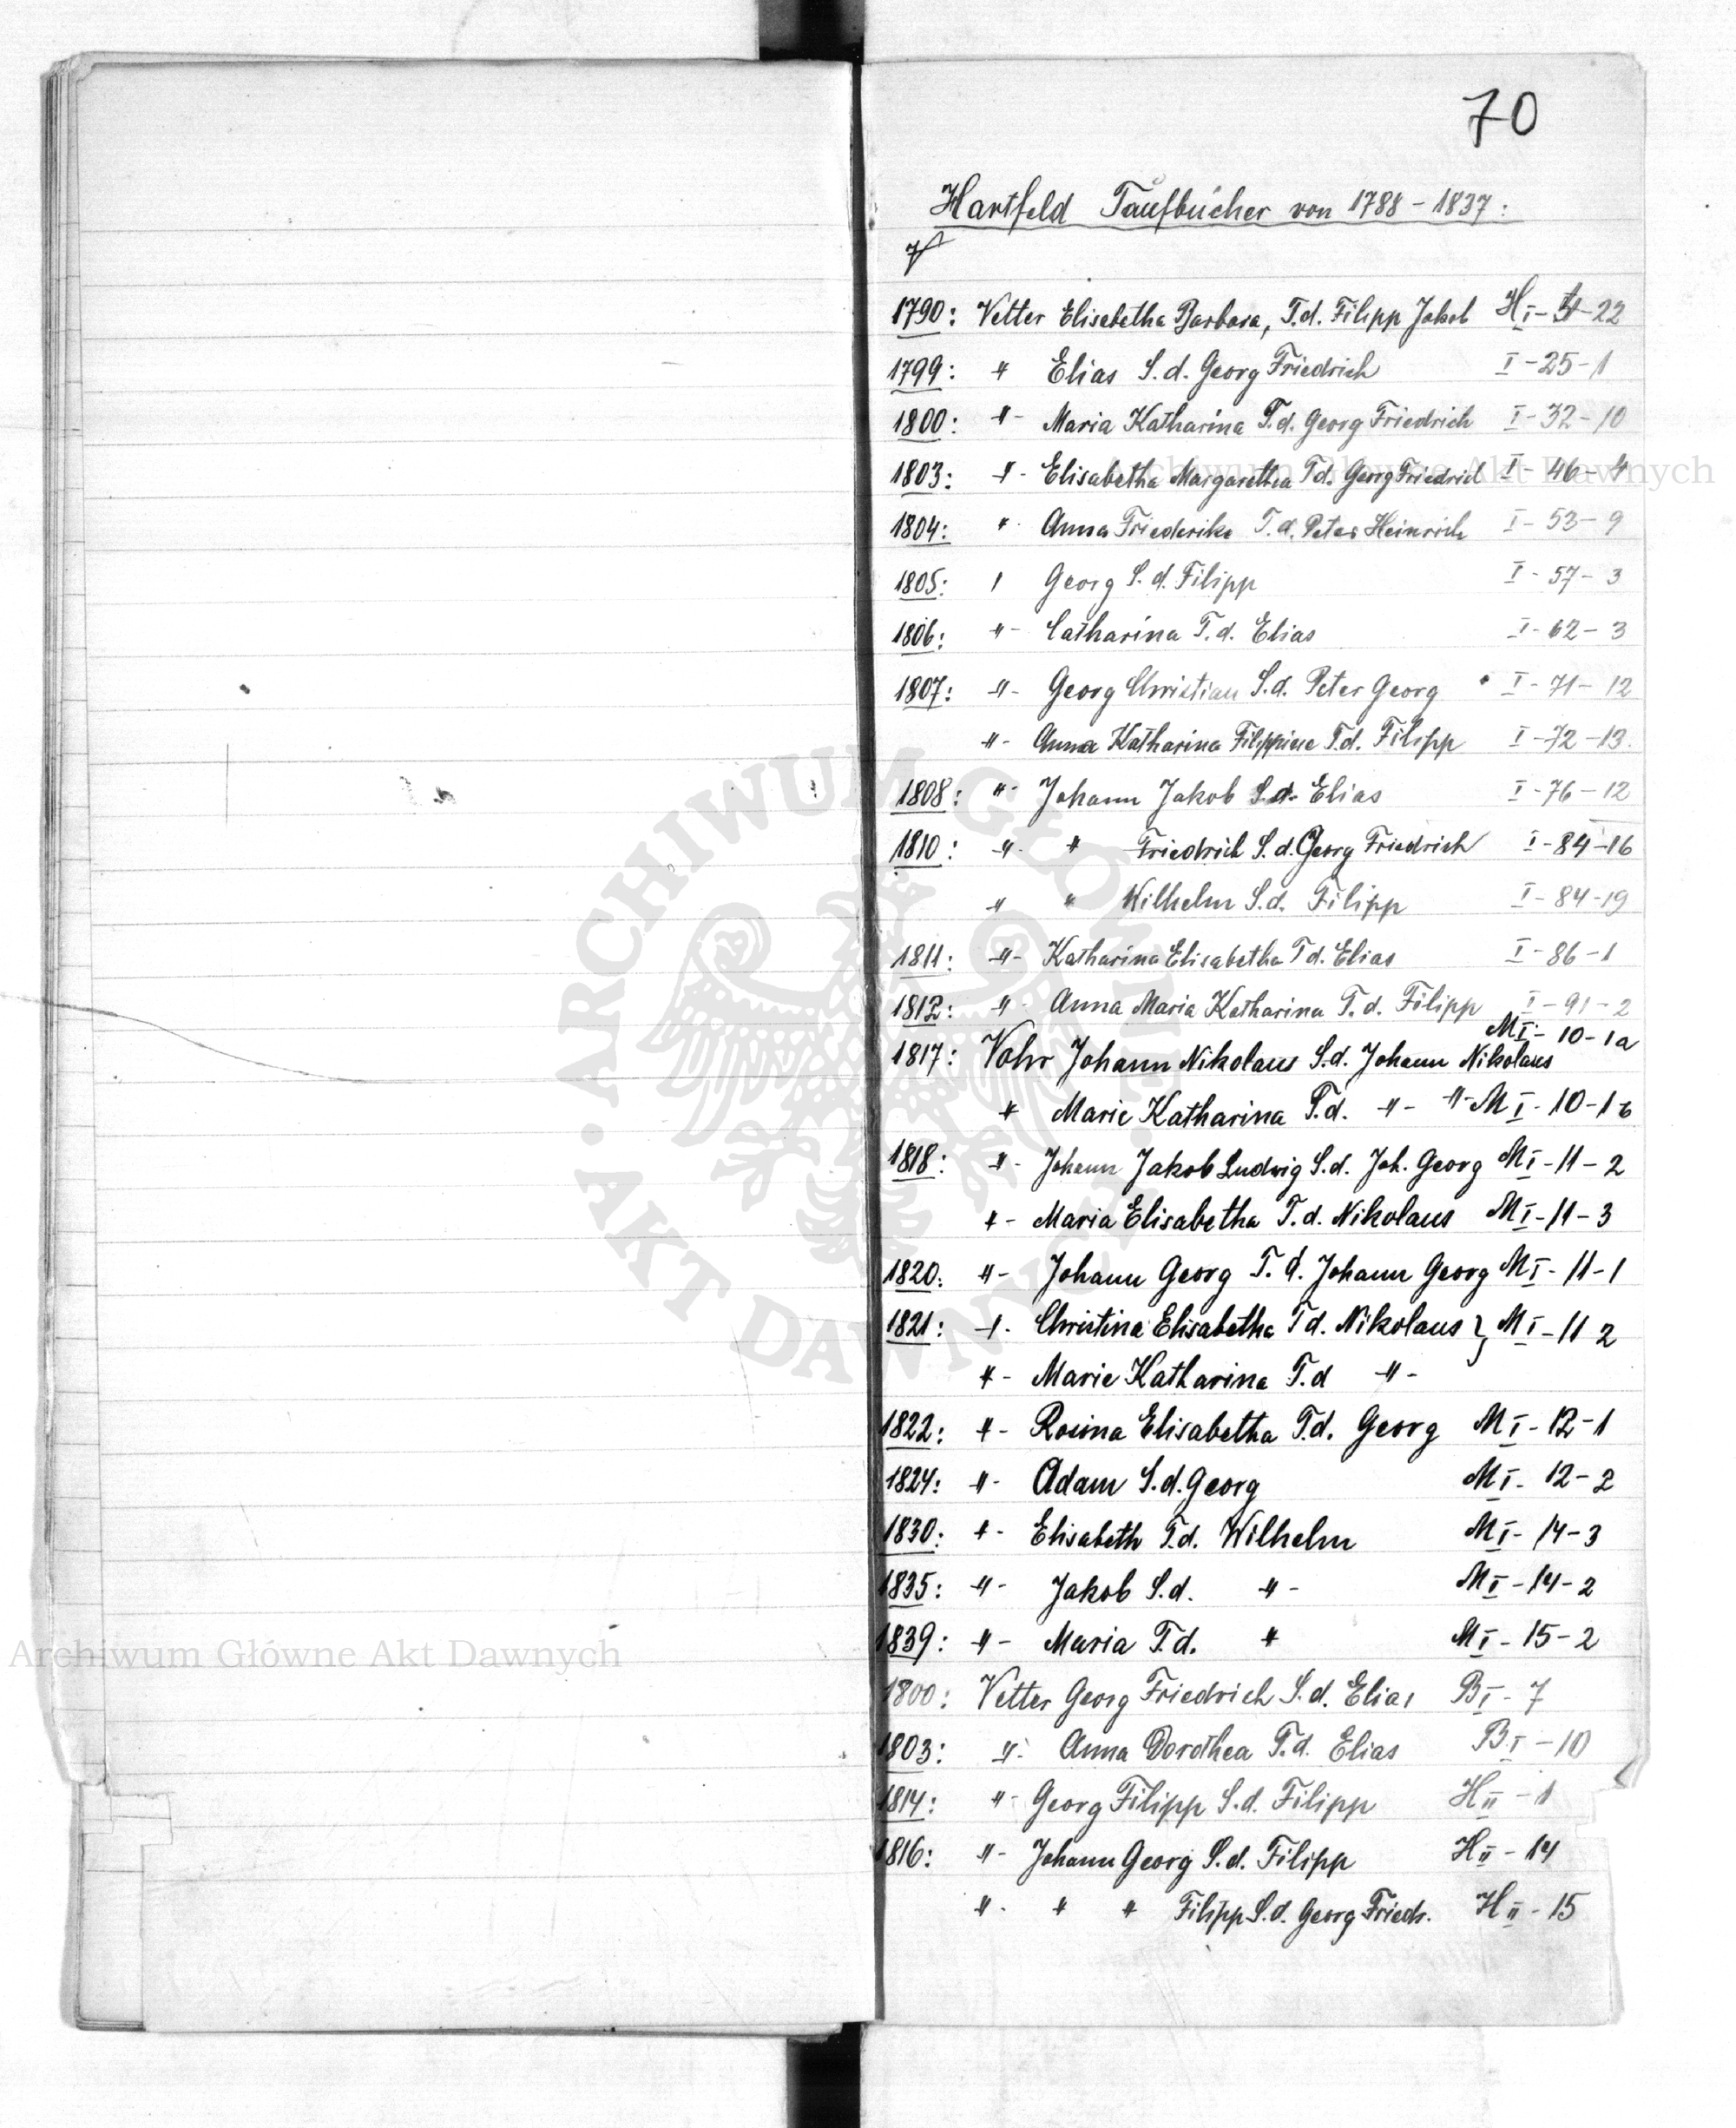 70
Hartfeld Taufbücher von 1788 - 1837:
V
1790: Vetter Elisabetha Barbara, T.d. Filipp Jakob H I - 4 - 22
1799: " Elias S.d. Georg Friedrich I - 25 - 1
1800: " - Maria Katharina T.d. Georg Friedrich I - 32 - 10
1803: " - Elisabetha Margarethea T.d. Georg Friedrich I - 46 - 4
1804: " - Anna Friederike T.d. Peter Heinrich I - 53 - 9
1805: " Georg S.d. Filipp I - 57 - 3
1806: - " - Catharina T.d. Elias I - 62 - 3
1807: - " - Georg Christian S.d. Peter Georg I - 71 - 12
- " - Anna Katharina Filippine T.d. Filipp I - 72 - 13.
1808: " - Johann Jakob S.d. Elias I - 76 - 12
1810: - " - " Friedrich S.d. Georg Friedrich I - 84 - 16
- " " Wilhelm S.d. Filipp I - 84 - 19
1811: - " - Katharina Elisabetha T.d. Elias I - 86 - 1
1812: " - Anna Maria Katharina T.d. Filipp I - 91 - 2
M I - 10 - 1a
1817: Vohr Johann Nikolaus S.d. Johann Nikolaus
" Marie Katharina T.d. - " - - " - M I - 10 - 1b
1818: " - Johann Jakob Ludwig S.d. Joh. Georg M I - 11 - 2
" - Maria Elisabetha T.d. Nikolaus M I - 11 - 3
1820: " - Johann Georg T.d. Johann Georg M I - 11 - 1
1821: - " - Christina Elisabetha T.d. Nikolaus } M I - 11 2
" - Marie Katharina T.d - " -
1822: " - Rosina Elisabetha T.d. Georg M I - 12 - 1
1824: " - Adam S.d. Georg M I - 12 - 2
1830: " - Elisabeth T.d. Wilhelm M I - 14 - 3
1835: - " - Jakob S.d. - " - M I - 14 - 2
1839: - " - Maria T.d. " M I - 15 - 2
1800: Vetter Georg Friedrich S.d. Elias B I - 7
1803: " - Anna Dorothea T.d. Elias B I - 10
1814: " - Georg Filipp S.d. Filipp H II - 1
1816: " - Johann Georg S.d. Filipp H II - 14
" - " " Filipp S.d. Georg Friedr. H II - 15
Archiwum Główne Akt Dawnych
Archiwum Główne Akt Dawnych
ARCHIWUM GŁÓWNE · AKT DAWNYCH ·